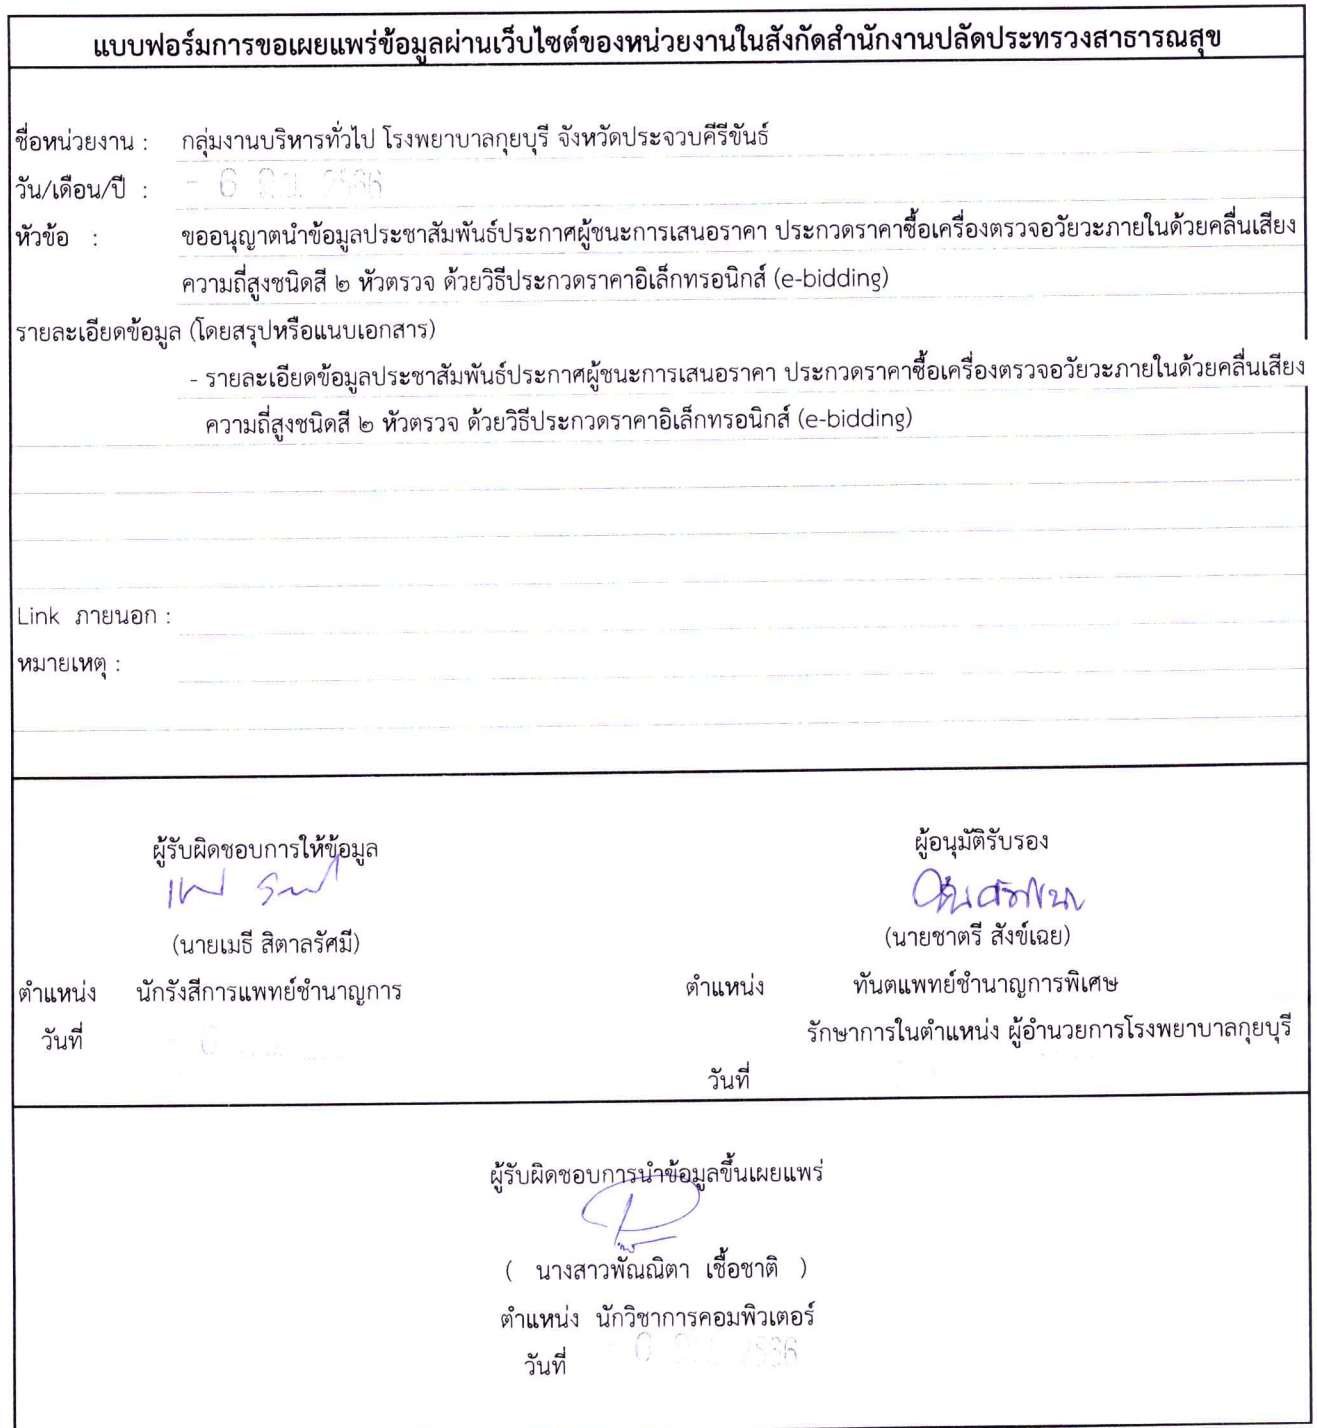 แบบฟอร์มการขอเผยแพร่ข้อมูลผ่านเว็บไซต์ของหน่วยงานในสังกัดสำนักงานปลัดประทรวงสาธารณสุข
ชื่อหน่วยงาน : กลุ่มงานบริหารทั่วไป โรงพยาบาลกุยบุรี จังหวัดประจวบคีรีขันธ์
วัน/เดือน/ปี : - 6
หัวข้อ : ขออนุญาตนำข้อมูลประชาสัมพันธ์ประกาศผู้ชนะการเสนอราคา ประกวดราคาซื้อเครื่องตรวจอวัยวะภายในด้วยคลื่นเสียง
ความถี่สูงชนิดสี ๒ หัวตรวจ ด้วยวิธีประกวดราคาอิเล็กทรอนิกส์ (e-bidding)
รายละเอียดข้อมูล (โดยสรุปหรือแนบเอกสาร)
- รายละเอียดข้อมูลประชาสัมพันธ์ประกาศผู้ชนะการเสนอราคา ประกวดราคาซื้อเครื่องตรวจอวัยวะภายในด้วยคลื่นเสียง
ความถี่สูงชนิดสี ๒ หัวตรวจ ด้วยวิธีประกวดราคาอิเล็กทรอนิกส์ (e-bidding)
Link ภายนอก :
หมายเหตุ :
ผู้รับผิดชอบการให้ข้อมูล
(นายเมธี สิตาลรัศมี)
ตำแหน่ง นักรังสีการแพทย์ชำนาญการ
วันที่
ผู้อนุมัติรับรอง
(นายชาตรี สังข์เฉย)
ตำแหน่ง ทันตแพทย์ชำนาญการพิเศษ
รักษาการในตำแหน่ง ผู้อำนวยการโรงพยาบาลกุยบุรี
วันที่
ผู้รับผิดชอบการนำข้อมูลขึ้นเผยแพร่
( นางสาวพัณณิตา เชื้อชาติ )
ตำแหน่ง นักวิชาการคอมพิวเตอร์
วันที่